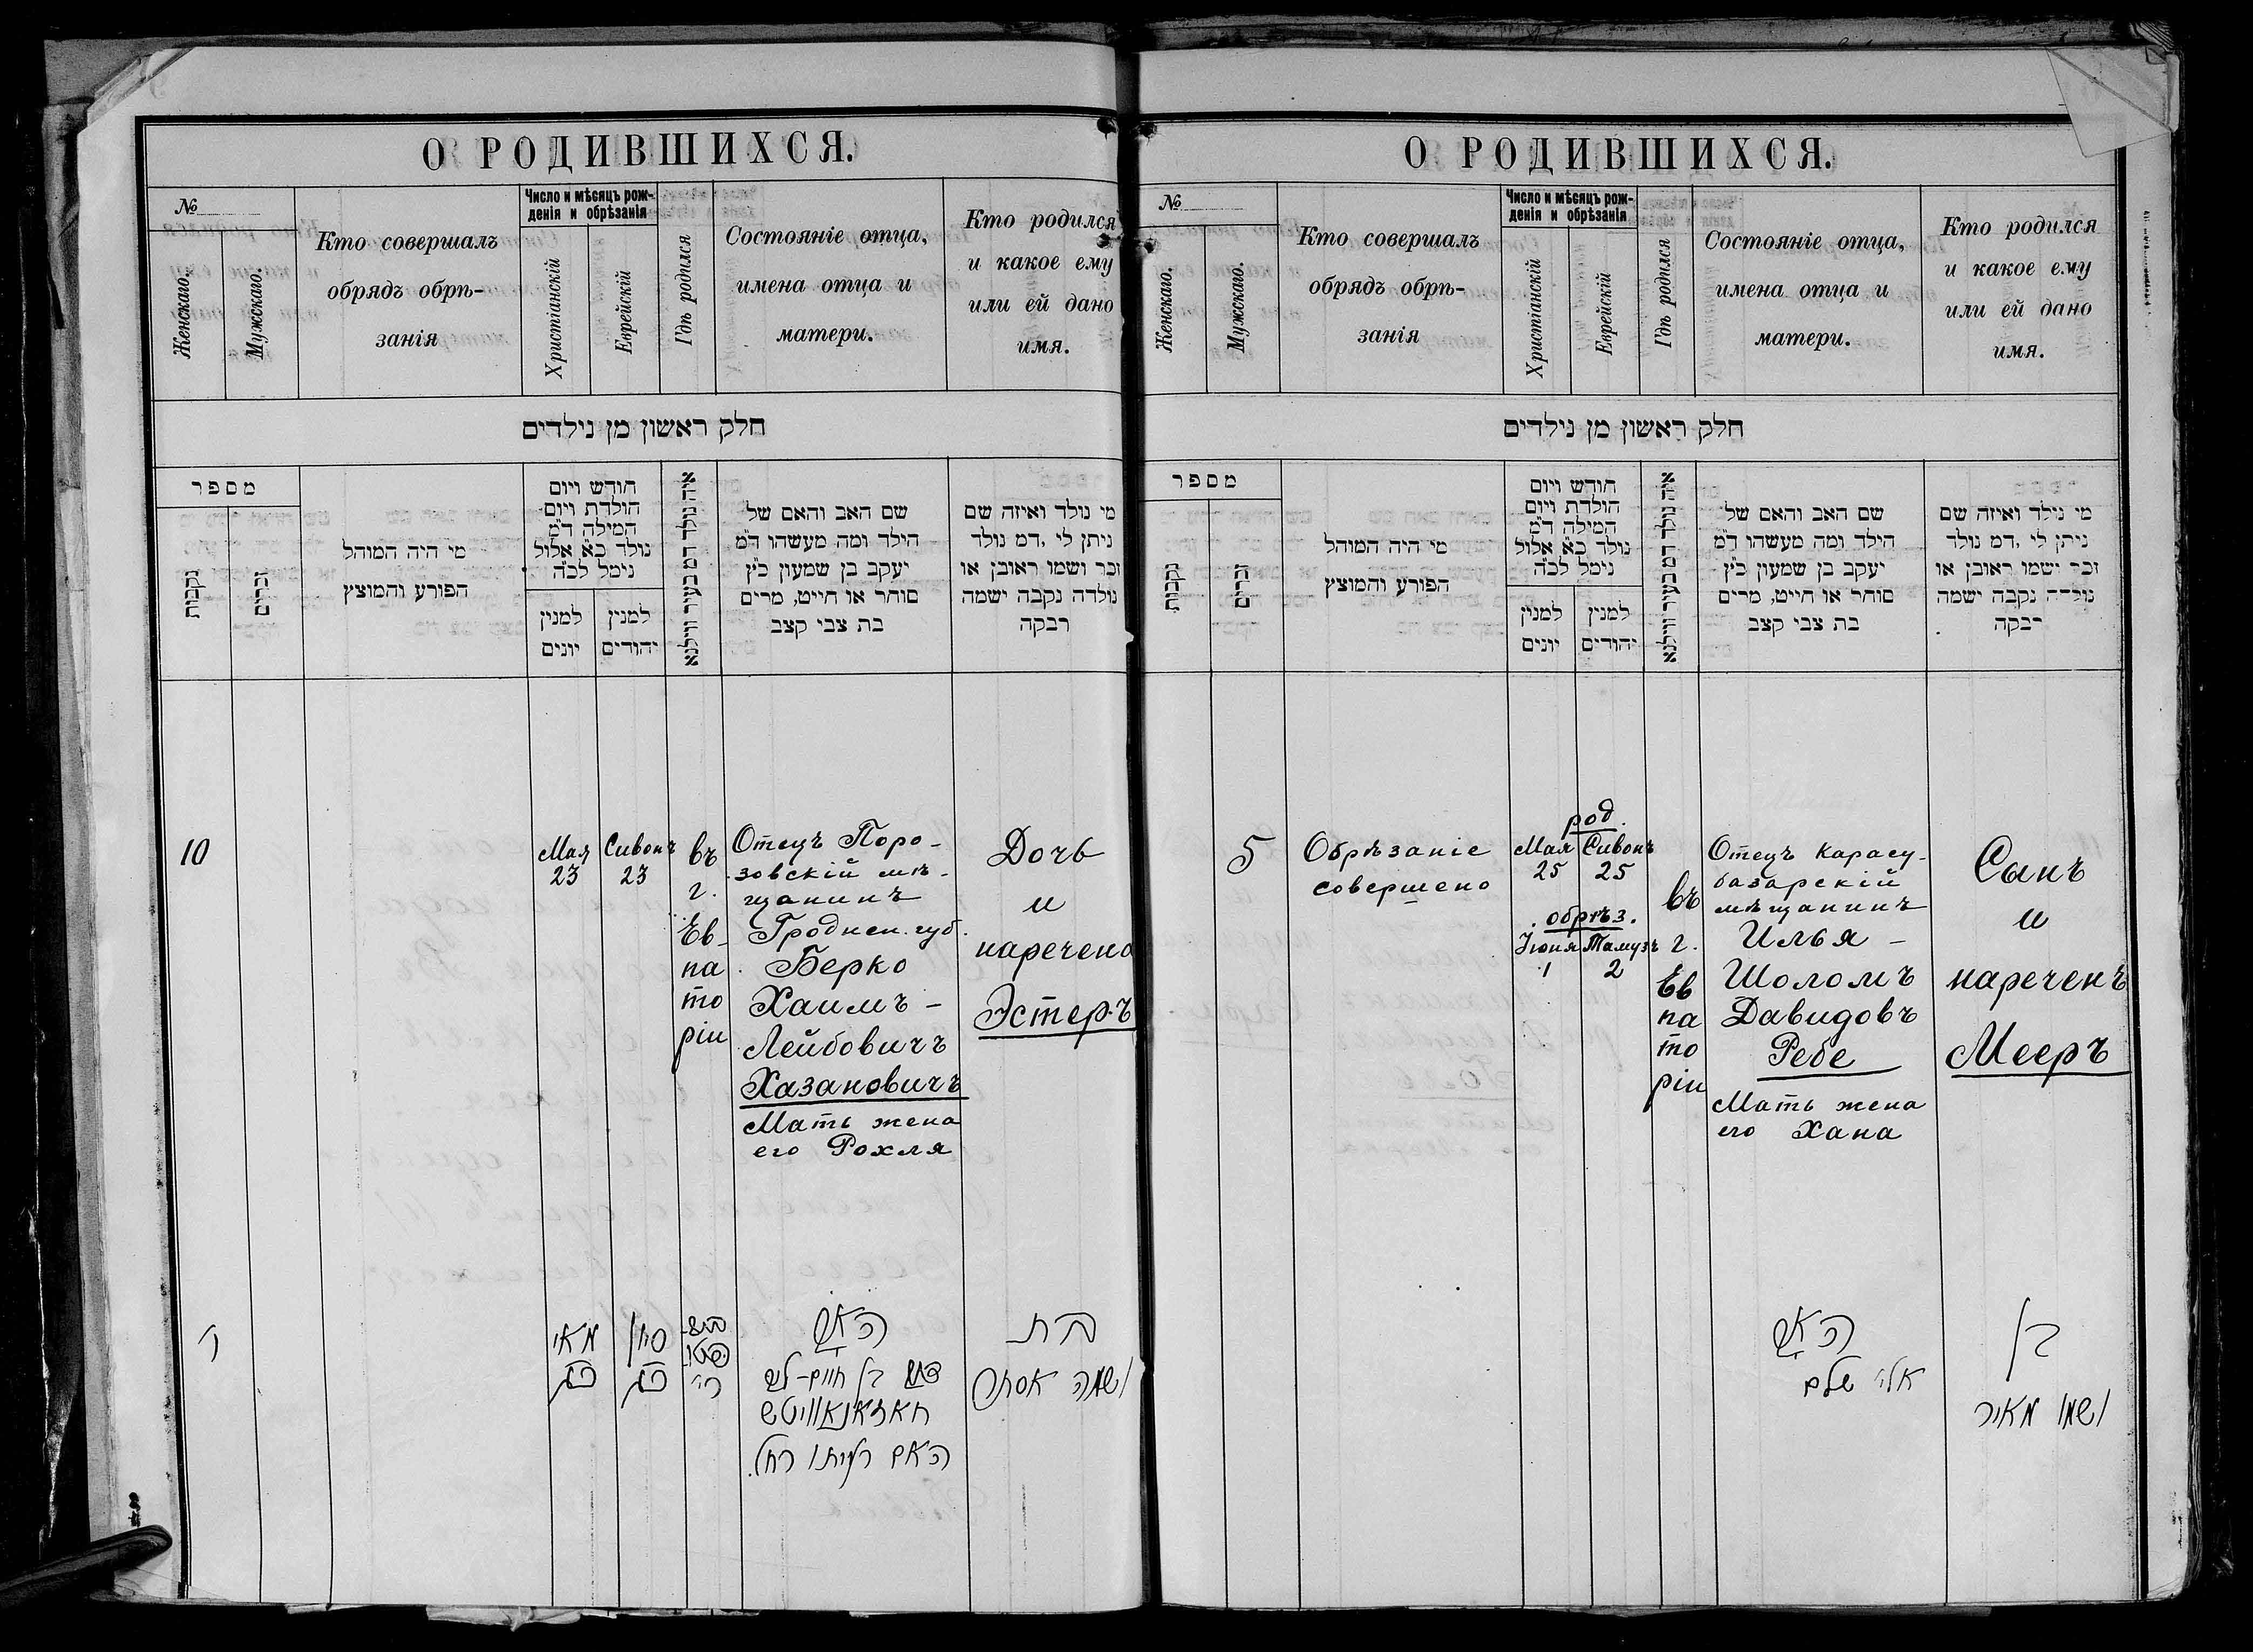 О РОДИВШИХСЯ.
№
Женскаго.
Мужскаго.
Кто совершалъ
обрядъ обрѣ-
занія
Число и мѣсяцъ рож-
денія и обрѣзанія
Христіанскій
Еврейскій
Гдѣ родился
Состояніе отца,
имена отца и
матери.
Кто родился
и какое ему
или ей дано
имя.
חלק ראשון מן נילדים
מספר
נקבות
זכרים
מי היה המוהל
הפורע והמוצץ
חודש ויום
הולדת ויום
המילה ד״מ
נולד כ״א אלול
נימל לכ״ה
למנין
יונים
למנין
יהודים
איה נולד דמ בעיר ווילנא
שם האב והאם של
הילד ומה מעשהו ד״מ
יעקב בן שמעון כ״ץ
סוחר או חייט, מרים
בת צבי קצב
מי נולד ואיזה שם
ניתן לי ,דמ נולד
זכר ושמו ראובן או
נולדה נקבה ישמה
רבקה
10
Мая
23
Сивонъ
23
въ
г.
Ев-
па
то
ріи
Отецъ Поро-
зовскій мѣ-
щанинъ
Гроднен. губ.
Берко
Хаимъ-
Лейбовичъ
Хазановичъ
Мать жена
его Рохля
Дочь
и
наречена
Эстеръ
י
מאי
כג
סיון
כג
האב
בן חיים-ליב
חאזאנאוויטש
האם רעיתו רחל.
בת
ושמה אסתר
О РОДИВШИХСЯ.
№
Женскаго.
Мужскаго.
Кто совершалъ
обрядъ обрѣ-
занія
Число и мѣсяцъ рож-
денія и обрѣзанія
Христіанскій
Еврейскій
Гдѣ родился
Состояніе отца,
имена отца и
матери.
Кто родился
и какое ему
или ей дано
имя.
חלק ראשון מן נילדים
מספר
נקבות
זכרים
מי היה המוהל
הפורע והמוצץ
חודש ויום
הולדת ויום
המילה ד״מ
נולד כ״א אלול
נימל לכ״ה
למנין
יונים
למנין
יהודים
איה נולד דמ בעיר ווילנא
שם האב והאם של
הילד ומה מעשהו ד״מ
יעקב בן שמעון כ״ץ
סוחר או חייט, מרים
בת צבי קצב
מי נילד ואיזה שם
ניתן לי ,דמ נולד
זכר ישמו ראובן או
נולדה נקבה ישמה
רבקה
5
Обрѣзаніе
совершено
род.
Мая
25
Сивонъ
25
обрѣз.
Іюня
1
Тамузъ
2
въ
г.
Ев
па
то
ріи
Отецъ Карасу-
базарскій
мѣщанинъ
Илья-
Шоломъ
Давидовъ
Ребе
Мать жена
его Хана
Сынъ
и
нареченъ
Мееръ
האב
אלי׳ שלם
בן
ושמו מאיר